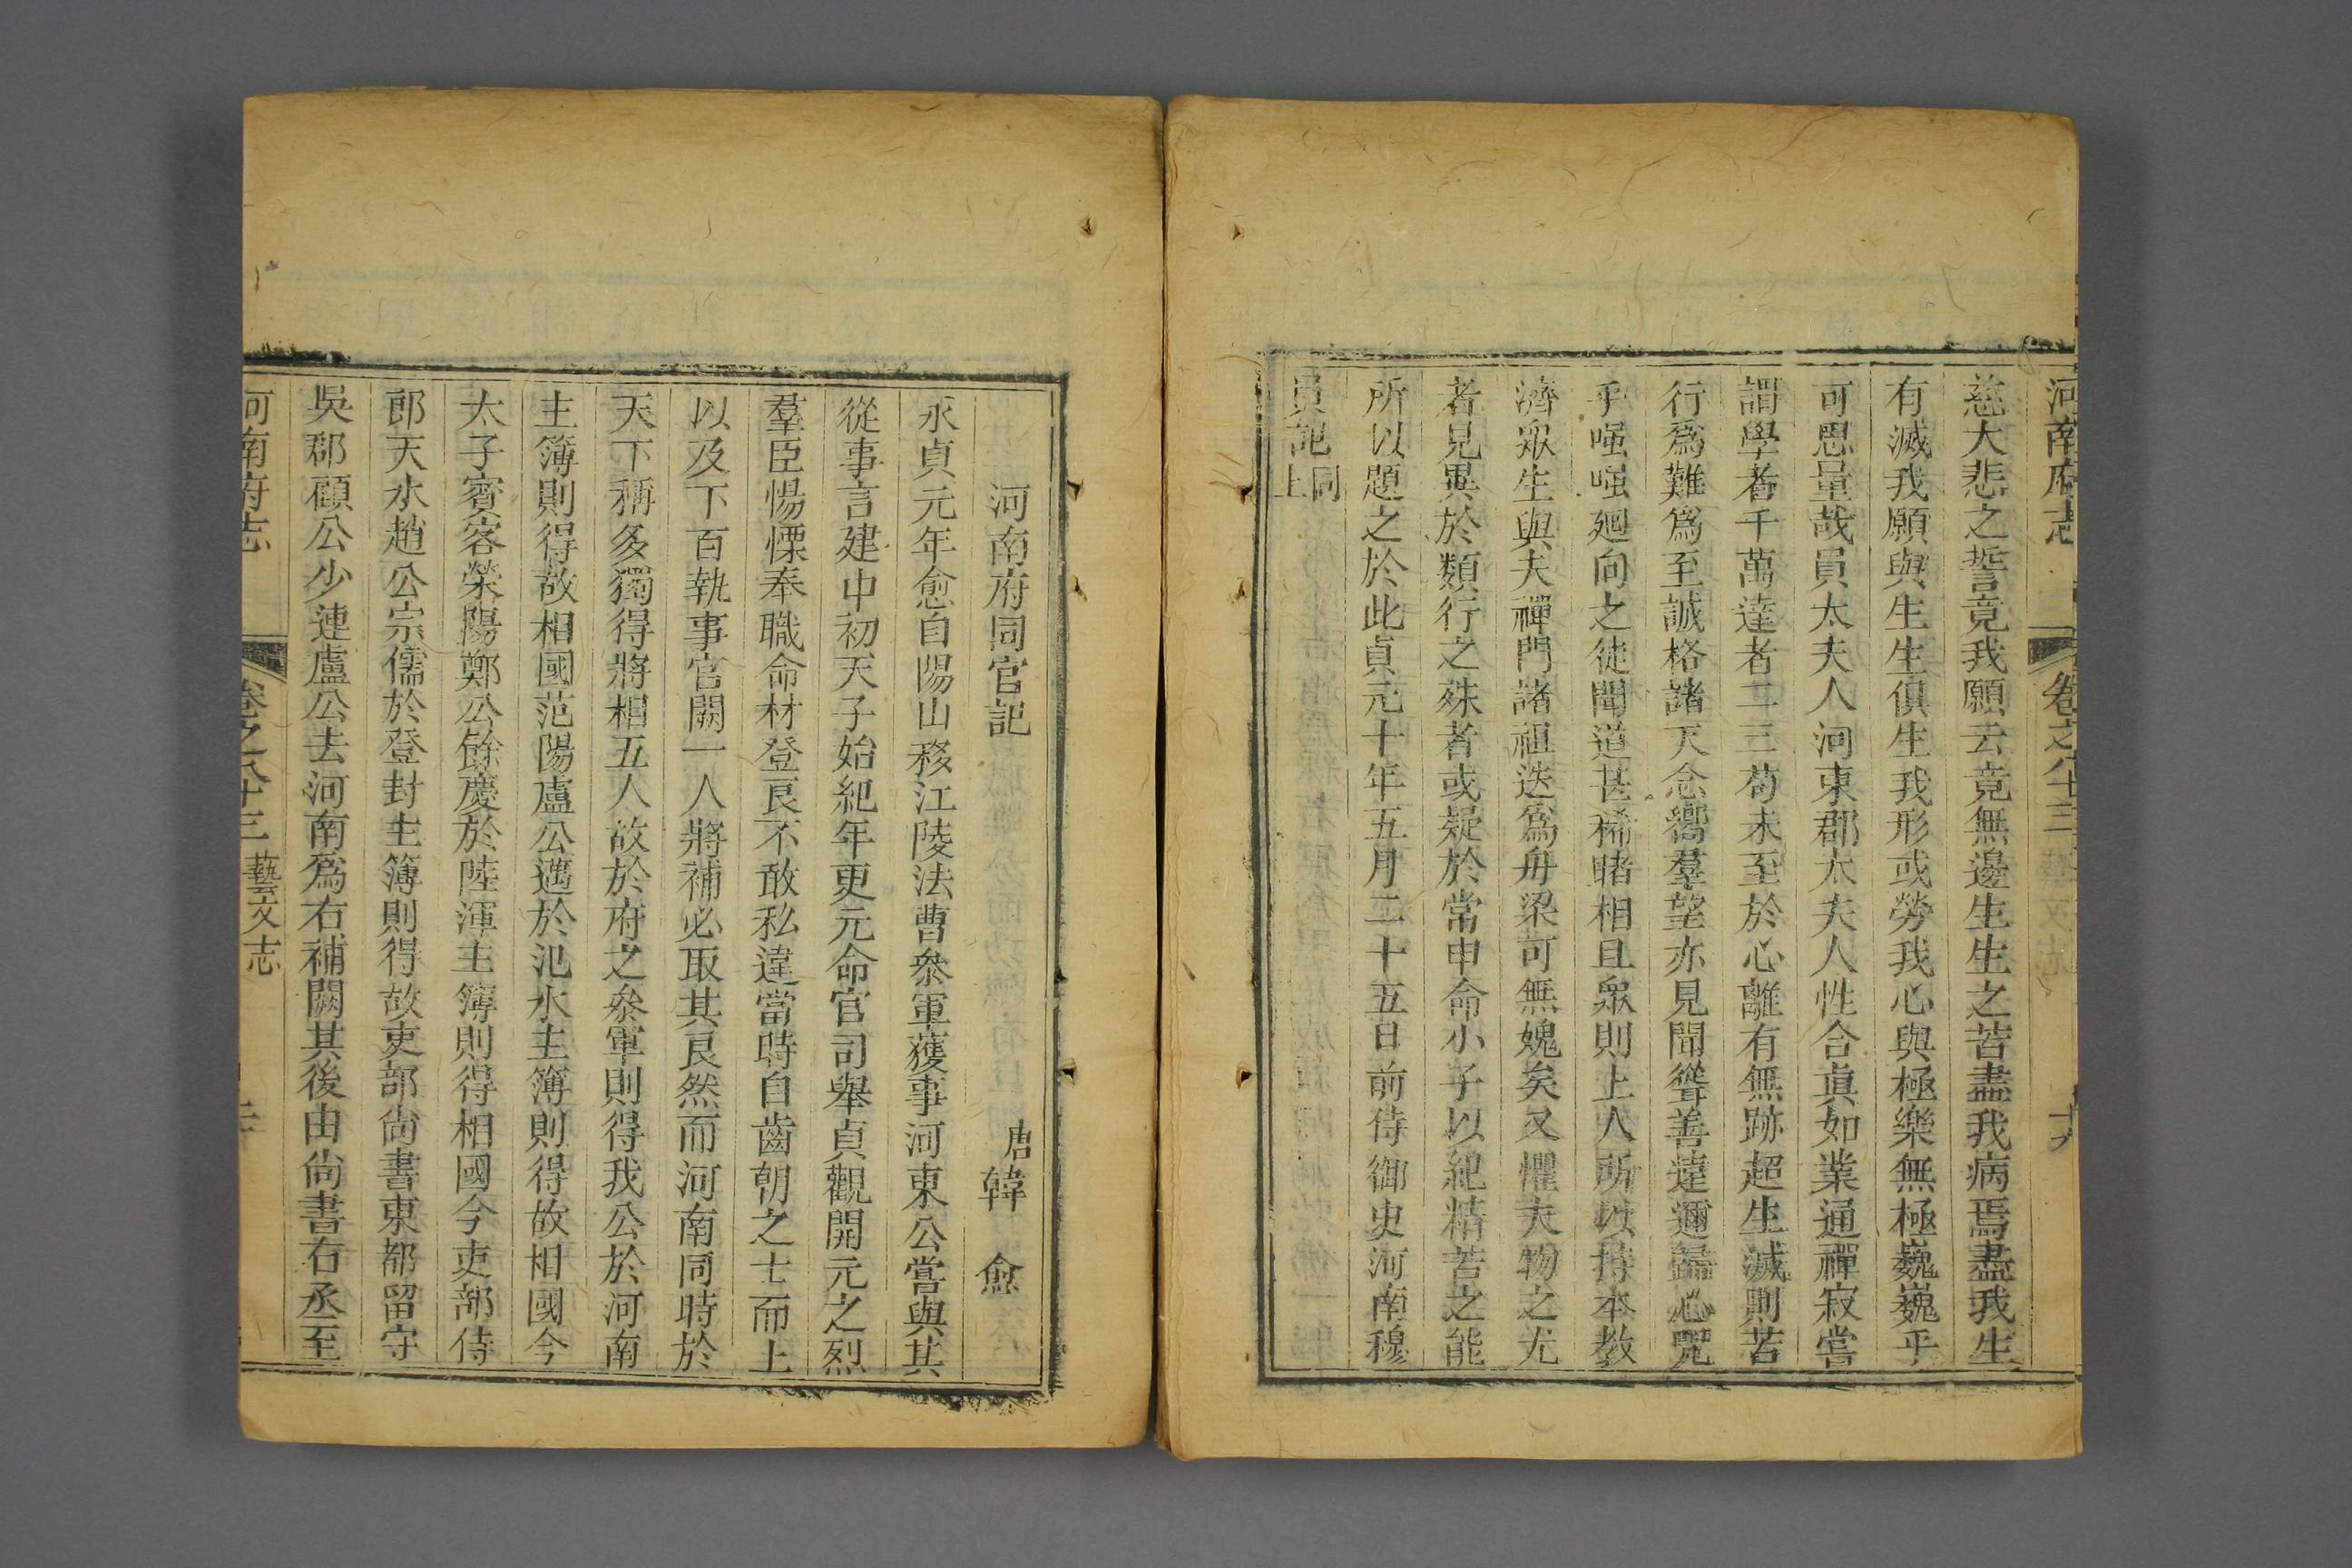 河南府志 卷之八十三 十九
慈大悲之誓竟我願云竟無邊生生之苦盡我病焉盡我生
有滅我願與生生俱生我形或勞我心與極樂無極巍巍乎
可思量哉員太夫人河東郡太夫人性合真如業通禪寂嘗
謂學者千萬達者二三苟未至於心離有無跡超生滅則苦
行爲難爲至誠格諸天念嚮羣望亦見聞聳善達邇歸心況
乎嗤嗤廻向之徒聞道甚稀睹相且眾則上人所以持本教
濟眾生與夫禪門諸祖迭爲舟梁可無媿矣又懼夫物之尤
者見異於類行之殊者或疑於常申命小子以紀精苦之能
所以題之於此貞元十年五月二十五日前侍御史河南穆
員記同上
河南府同官記
唐韓愈
永貞元年愈自陽山移江陵法曹叅軍獲事河東公嘗與其
從事言建中初天子始紀年更元命官司舉貞觀開元之烈
羣臣惕慄奉職命材登良不敢私違當時自齒朝之士而上
以及下百執事官闕一人將補必取其良然而河南同時於
天下稱多獨得將相五人故於府之叅軍則得我公於河南
主簿則得故相國范陽盧公邁於汜水主簿則得故相國今
太子賓客滎陽鄭公餘慶於陸渾主簿則得相國今吏部侍
郎天水趙公宗儒於登封主簿則得故吏部尚書東都留守
吳郡顧公少連盧公去河南爲右補闕其後由尚書右丞至
河南府志 卷之八十三 藝文志